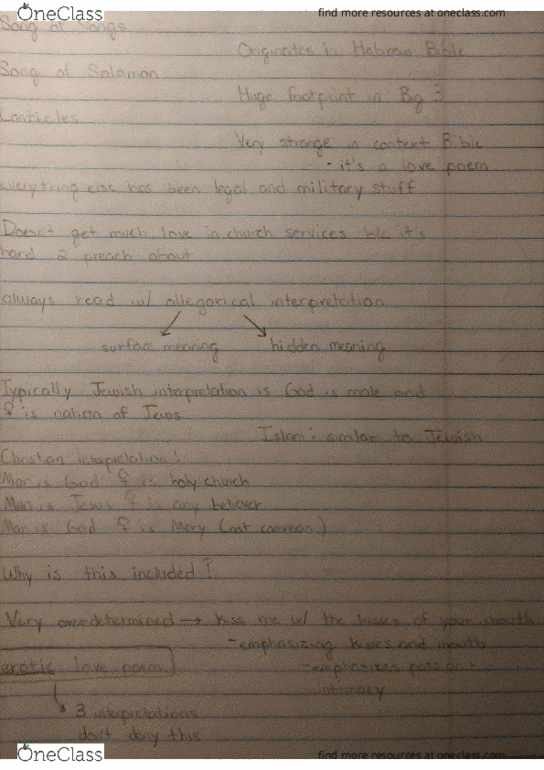 OneClass
find more resources at oneclass.com
Song of Songs
Originates in Hebrew Bible
Song of Solomon
Huge footprint in Big 3
Canticles
Very strange in context Bible
- it's a love poem
everything else has been legal and military stuff
Doesn't get much love in church services b/c it's
hard 2 preach about
always read w/ allegorical interpretation
surface meaning hidden meaning
Typically Jewish interpretation is God is male and
♀ is nation of Jews
Islam: similar to Jewish
Christian
Man is God ♀ is holy church
Man is Jesus ♀ is any believer
Man is God ♀ is Mary (not common)
Why is this included?
Very overdetermined → Kiss me w/ the kisses of your mouth
- emphasizing kisses and mouth
erotic love poem
- emphasizes passion +
intimacy
3 interpretations
don't deny this
OneClass
find more resources at oneclass.com